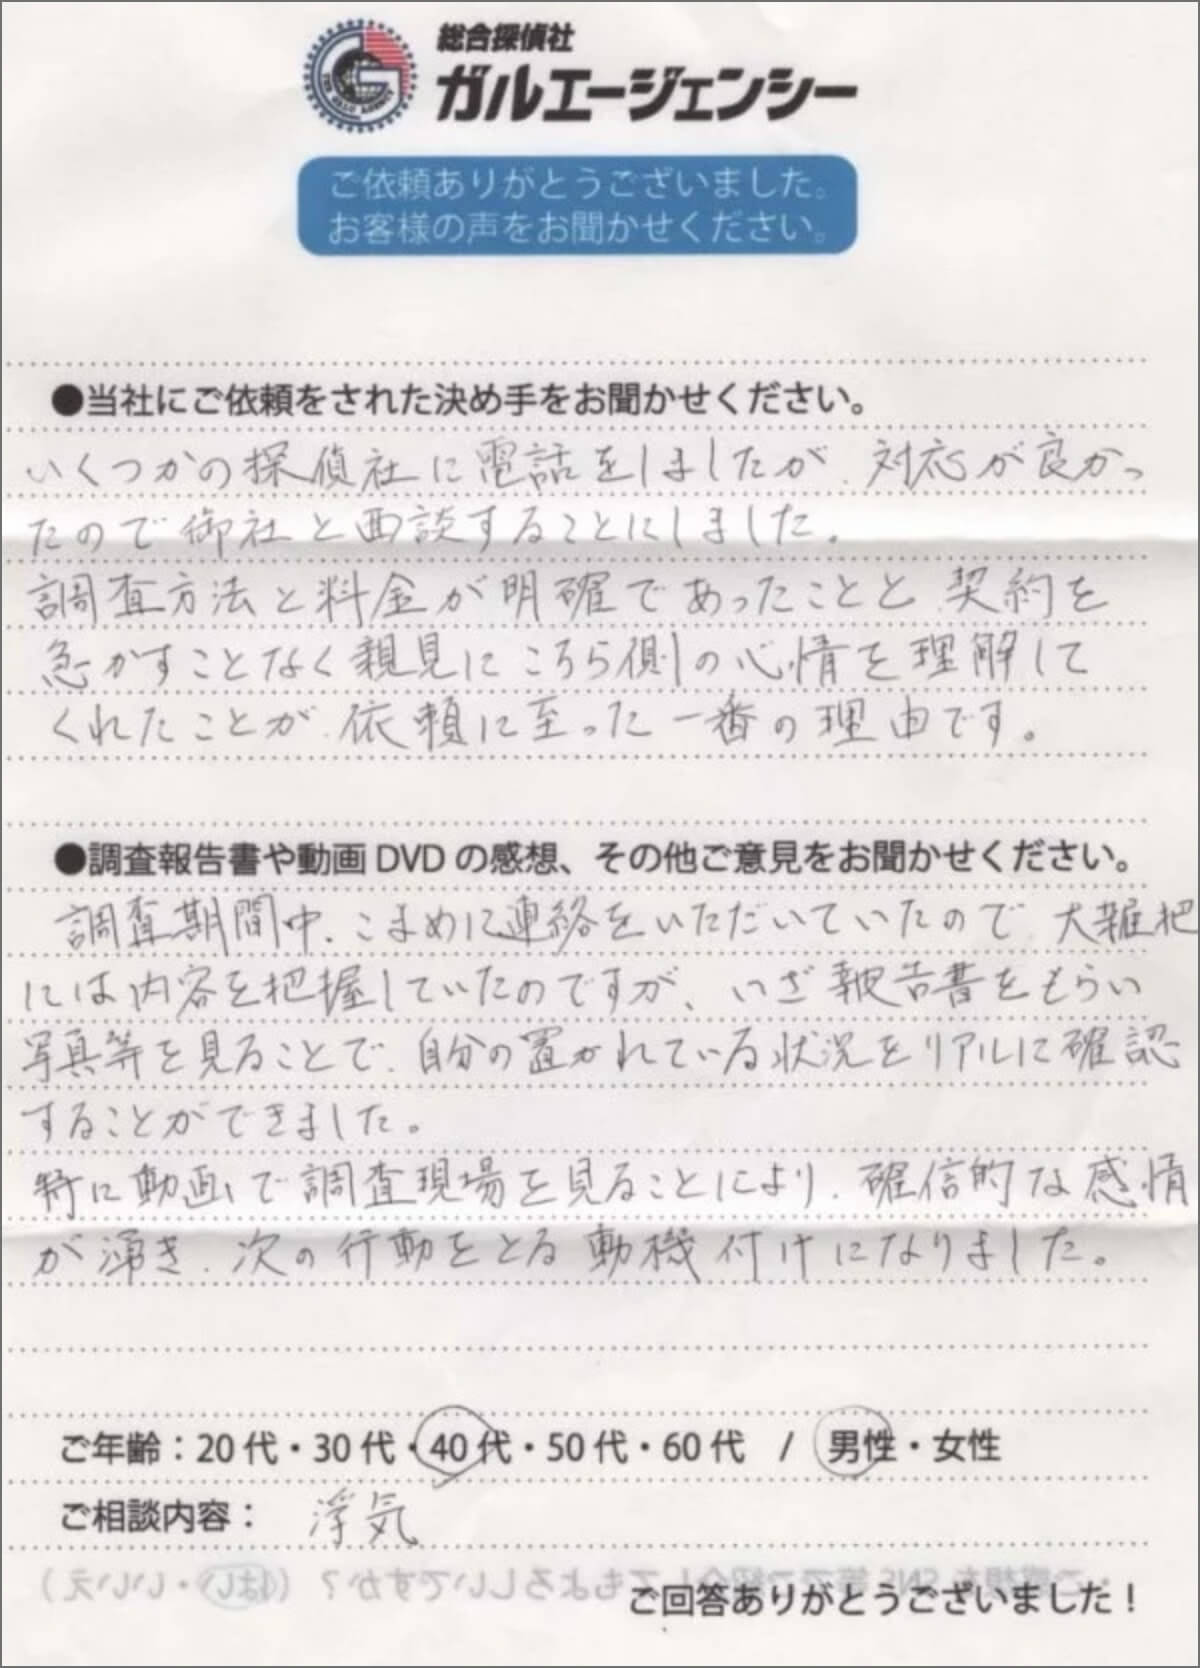 総合探偵社
ガルエージェンシー
ご依頼ありがとうございました。
お客様の声をお聞かせください。
●当社にご依頼をされた決め手をお聞かせください。
いくつかの探偵社に電話をしましたが、対応が良かっ
たので御社と面談することにしました。
調査方法と料金が明確であったことと、契約を
急かすことなく親見にこちら側の心情を理解して
くれたことが、依頼に至った一番の理由です。
●調査報告書や動画DVDの感想、その他ご意見をお聞かせください。
調査期間中、こまめに連絡をいただいていたので、大雑把
には内容を把握していたのですが、いざ報告書をもらい
写真等を見ることで、自分の置かれている状況をリアルに確認
することができました。
特に動画で調査現場を見ることにより、確信的な感情
が湧き、次の行動をとる動機付けになりました。
ご年齢：20代・30代・40代・50代・60代 / 男性・女性
ご相談内容： 浮気
ご回答ありがとうございました！